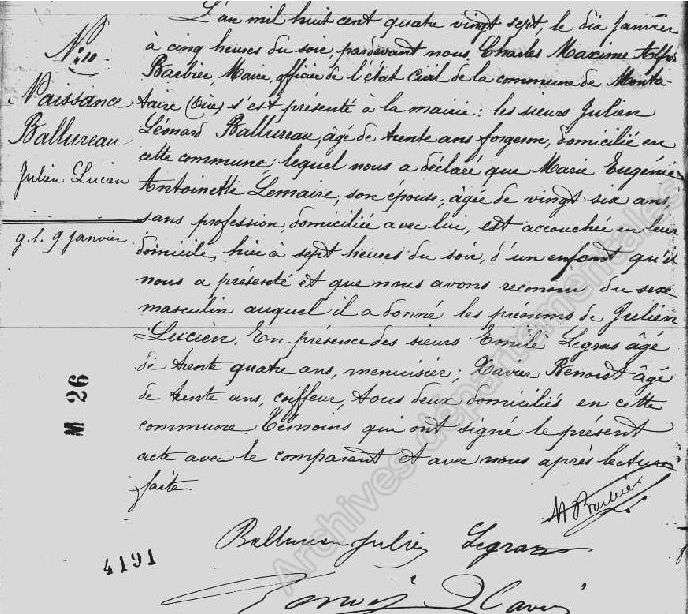 N° 10
Naissance
Ballureau
Julien Lucien
g. l. 9 janvier
M 26
4191
L'an mil huit cent quatre vingt sept, le dix Janvier
à cinq heures du soir, pardevant nous Charles Maxime
Barbier Maire, officier de l'état civil de la commune de Monta-
taire (Oise) s'est présenté à la mairie: les sieurs Julien
Léonard Ballureau, âgé de trente ans forgeron, domicilié en
cette commune; lequel nous a déclaré que Marie Eugénie
Antoinette Lemaire, son épouse, âgée de vingt six ans,
sans profession, domiciliée avec lui, est accouchée en leur
domicile, hier à sept heures du soir, d'un enfant qu'il
nous a présenté et que nous avons reconnu du sexe
masculin auquel il a donné les prénoms de Julien
=Lucien. En présence des sieurs Emile Legros âgé
de trente quatre ans, menuisier; Xavier Benoist âgé
de trente ans, coiffeur, tous deux domiciliés en cette
commune témoins qui ont signé le présent
acte avec le comparant et avec nous après lecture
faite.
Barbier
Ballureau Julien Legros
Archives départementales